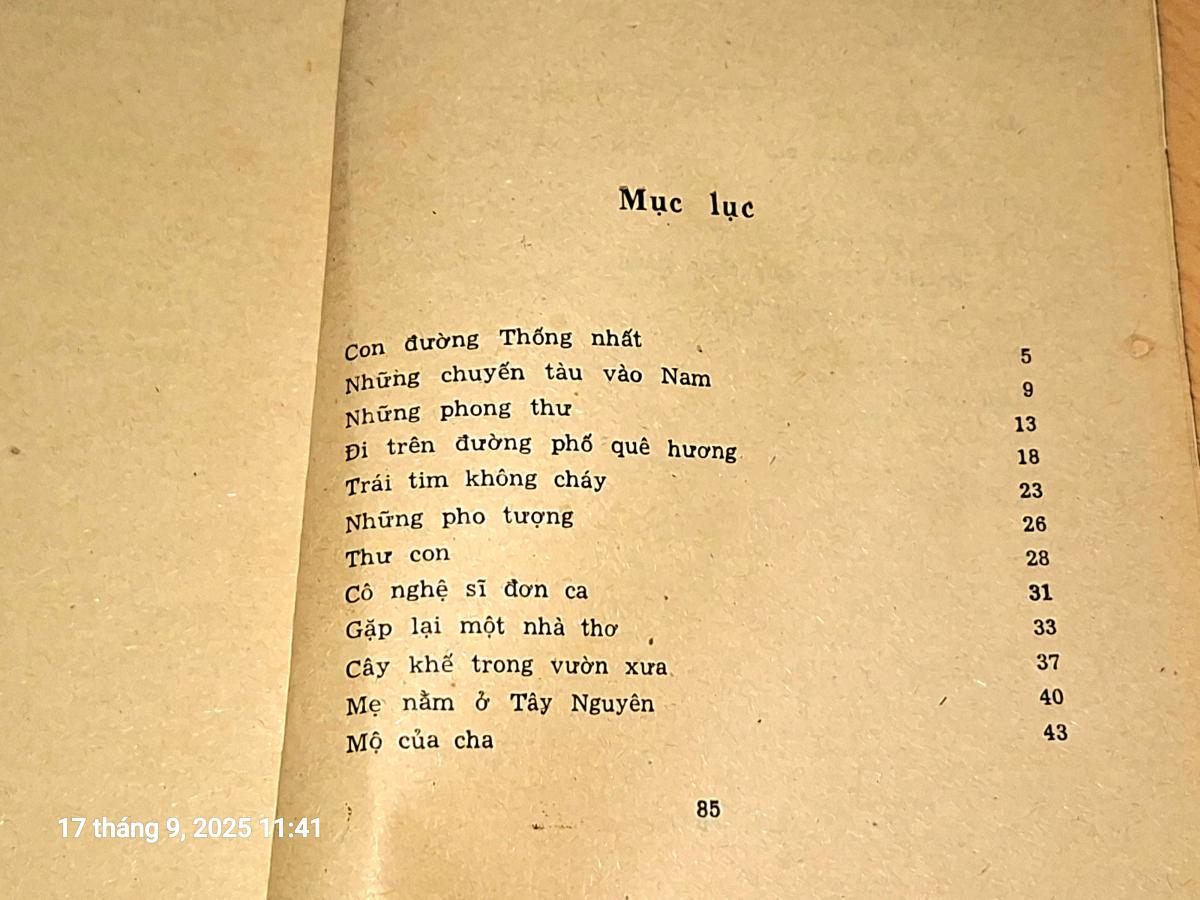 Mục lục
Con đường Thống nhất 5
Những chuyến tàu vào Nam 9
Những phong thư 13
Đi trên đường phố quê hương 18
Trái tim không cháy 23
Những pho tượng 26
Thư con 28
Cô nghệ sĩ đơn ca 31
Gặp lại một nhà thơ 33
Cây khế trong vườn xưa 37
Mẹ nằm ở Tây Nguyên 40
Mộ của cha 43
85
17 tháng 9, 2025 11:41